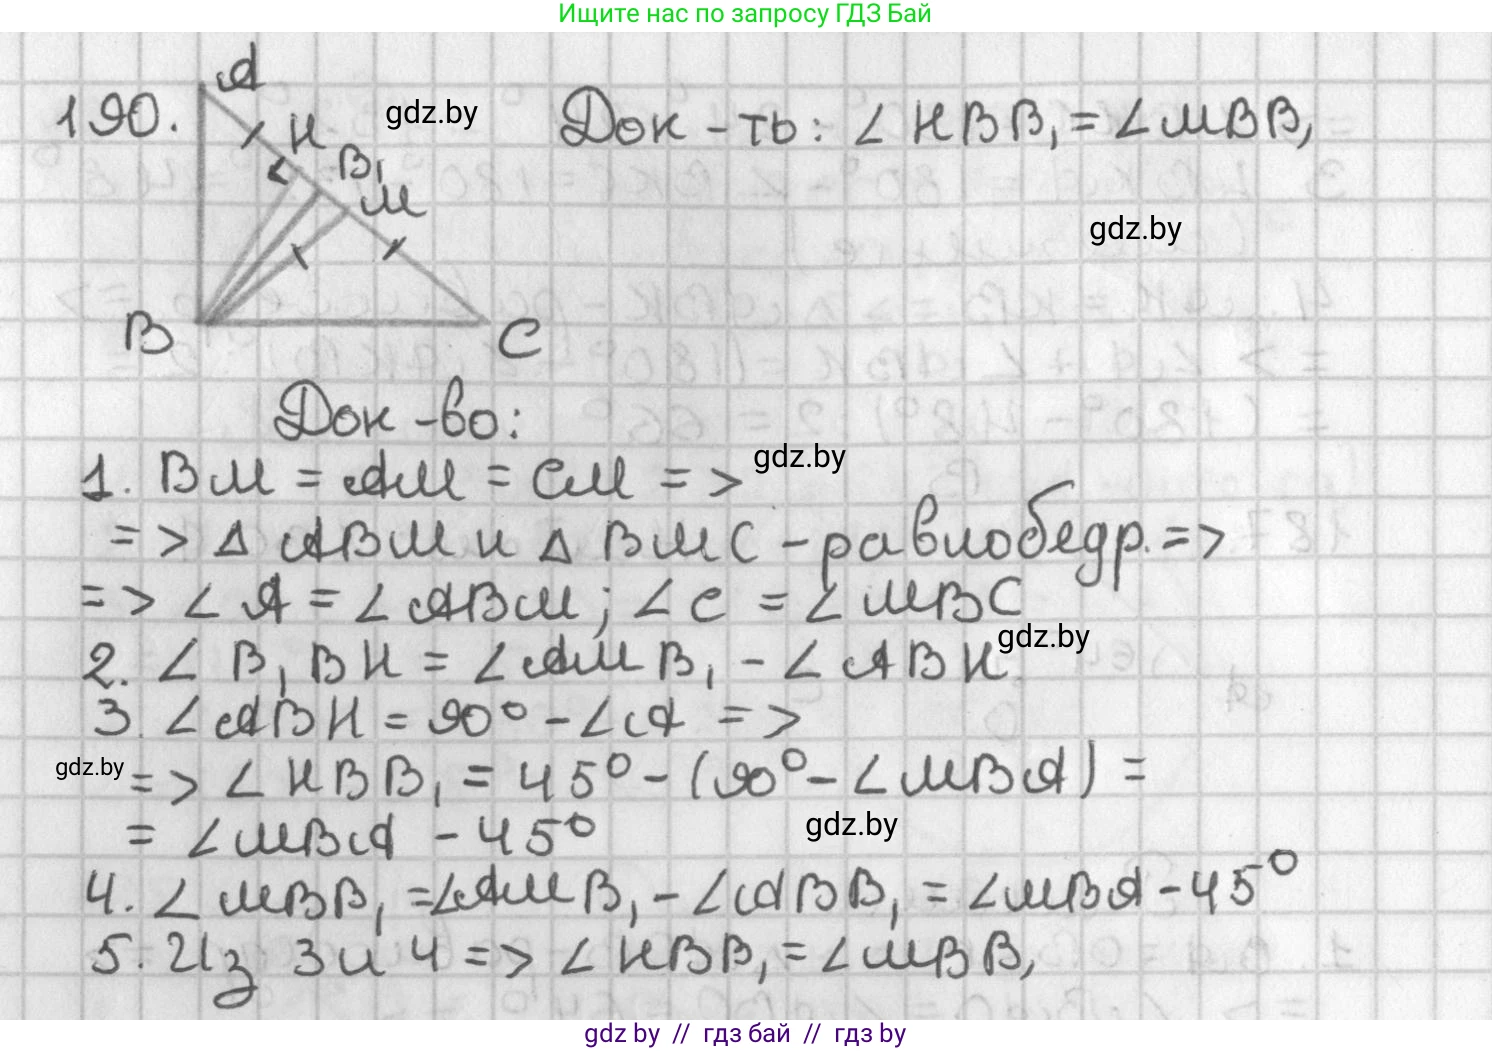 Ищите нас по запросу ГДЗ Бай
190.
A
H
B₁
M
B
C
gdz.by
Док-ть: ∠HBB₁ = ∠MBB₁
gdz.by
Док-во:
1. BM = AM = CM =>
gdz.by
=> △ ABM и △ BMC - равнобедр. =>
=> ∠A = ∠ABM; ∠C = ∠MBC
gdz.by
2. ∠B₁BH = ∠AMB₁ - ∠ABH
3. ∠ABH = 90° - ∠A =>
gdz.by
=> ∠HBB₁ = 45° - (90° - ∠MBA) =
= ∠MBA - 45°
gdz.by
4. ∠MBB₁ = ∠AMB₁ - ∠ABB₁ = ∠MBA - 45°
5. Из 3 и 4 => ∠HBB₁ = ∠MBB₁
gdz by // гдз бай // гдз by